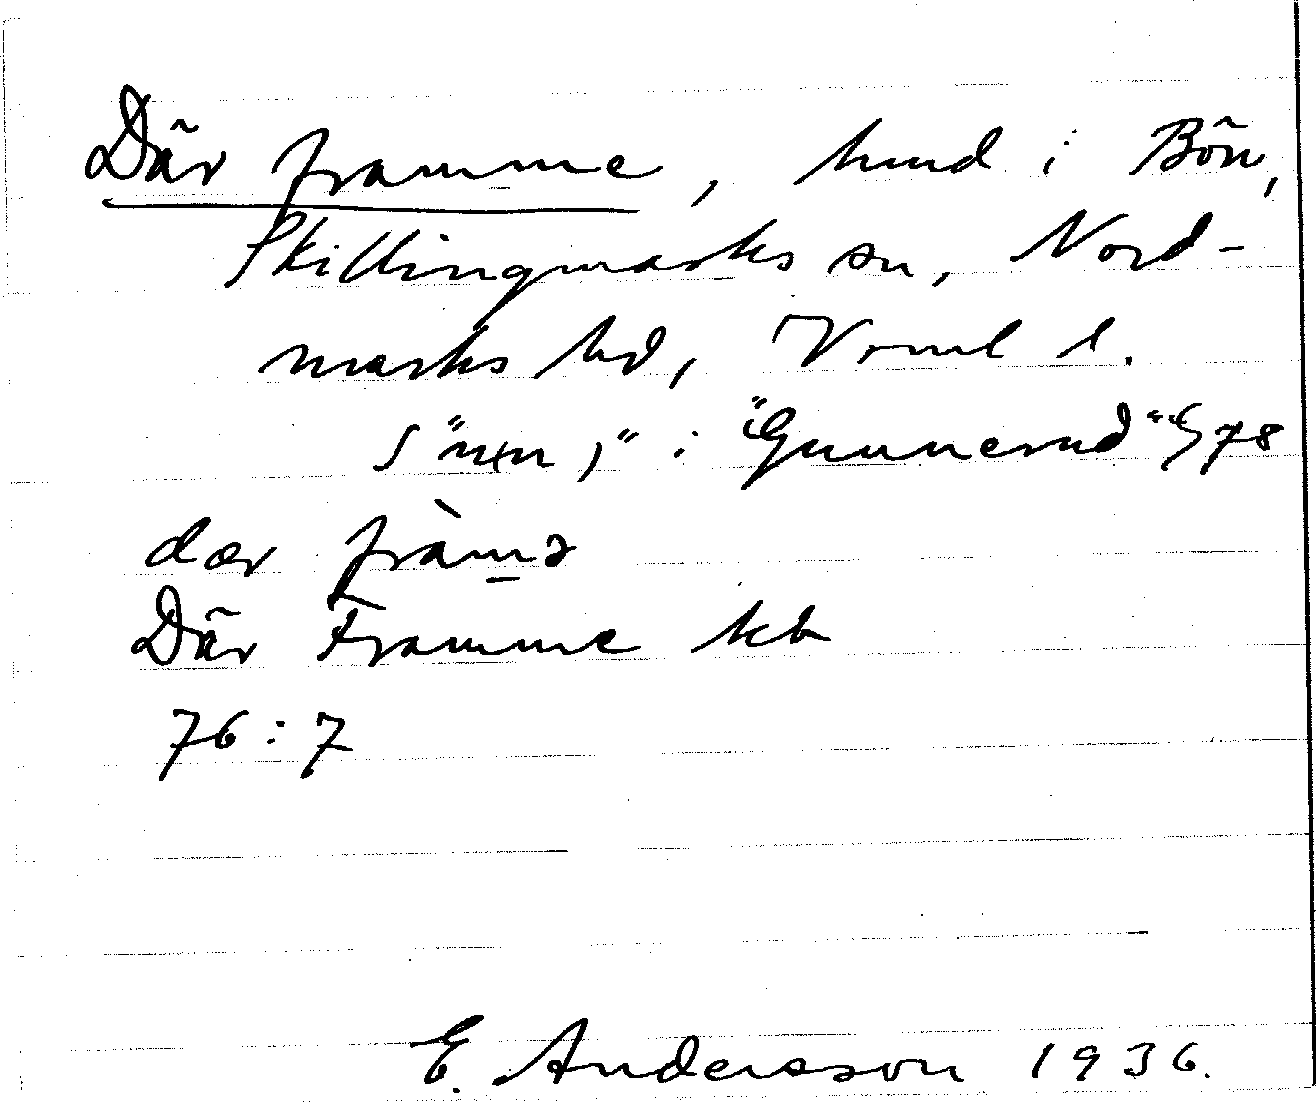 Där framme, hmd i Bön,
Skillingmarks sn, Nord-
marks hd, Vrml l.
S "u+n," i "Gunnerud" S 78
dær fràmə
Där Framme kb
76:7
E. Andersson 1936.